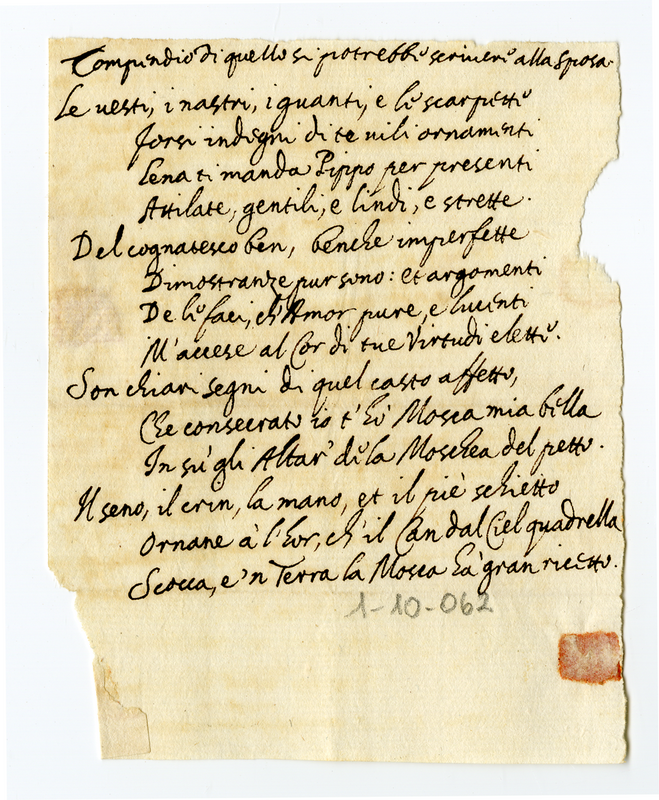 Compendio di quello si potrebbe scrivere alla Sposa.
Le vesti, i nastri, i guanti, e le scarpette
Forsi indegni di te vili ornamenti
Lena ti manda Pippo per presenti
Attilate, gentili, e lindi, e strette.
Del cognatesco ben, benche imperfette
Dimostranze pur sono: et argomenti
De le faci, ch'Amor pure, e lucenti
M'accese al Cor di tue Virtudi elette.
Son chiari segni di quel casto affetto,
Che consecrato io t'hò Mosca mia bella
In sù gli Altar' de la Moschea del petto.
Il seno, il crin, la mano, et il piè schietto
Ornane à l'hor, ch'il Can dal Ciel quadrella
Scocca, e'n Terra la Mosca hà gran ricetto.
1-10-062